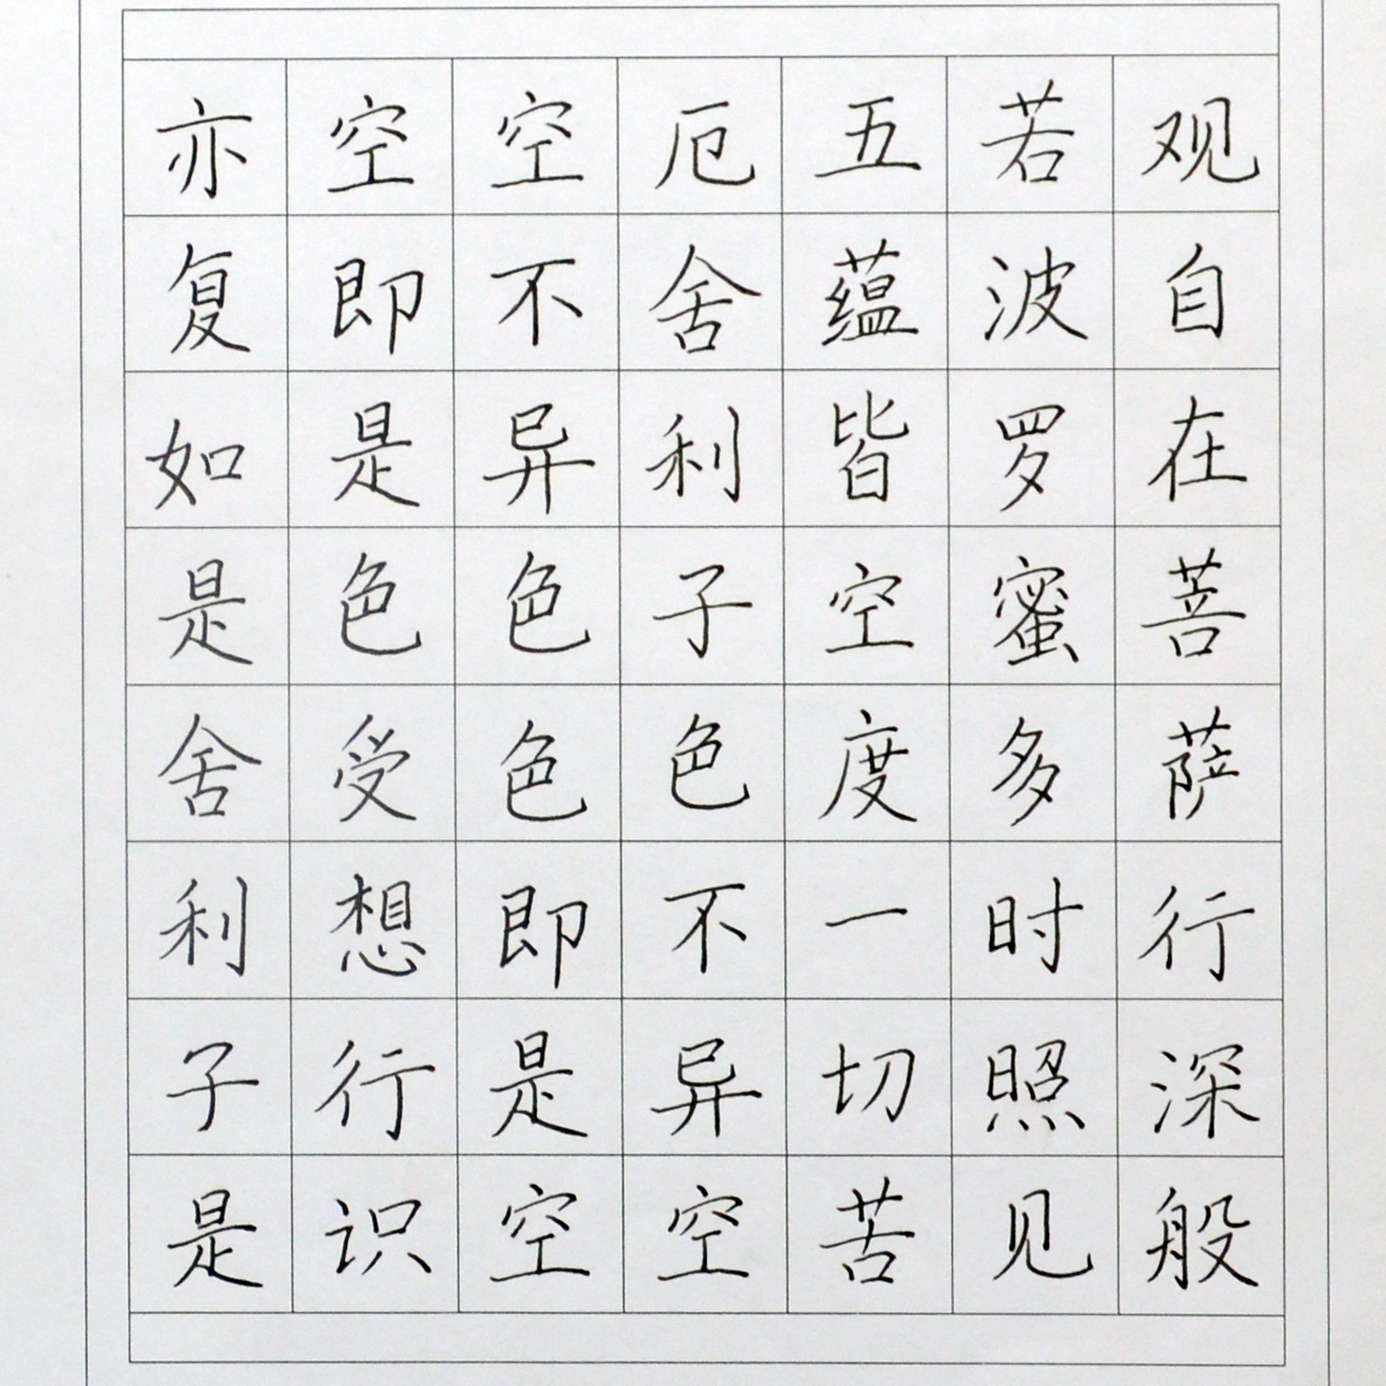 观自在菩萨行深般
若波罗蜜多时照见
五蕴皆空度一切苦
厄舍利子色不异空
空不异色色即是空
空即是色受想行识
亦复如是舍利子是